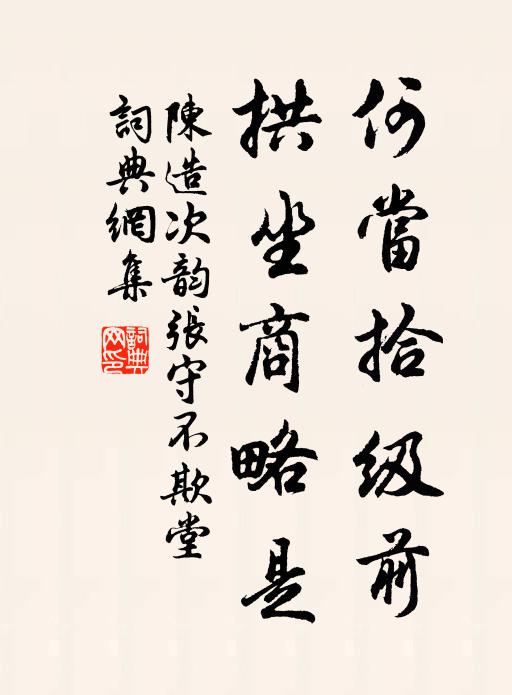 何當拾級前
拱坐商略是
陳造次韵張守不欺堂
詞典網集
詞典
网印